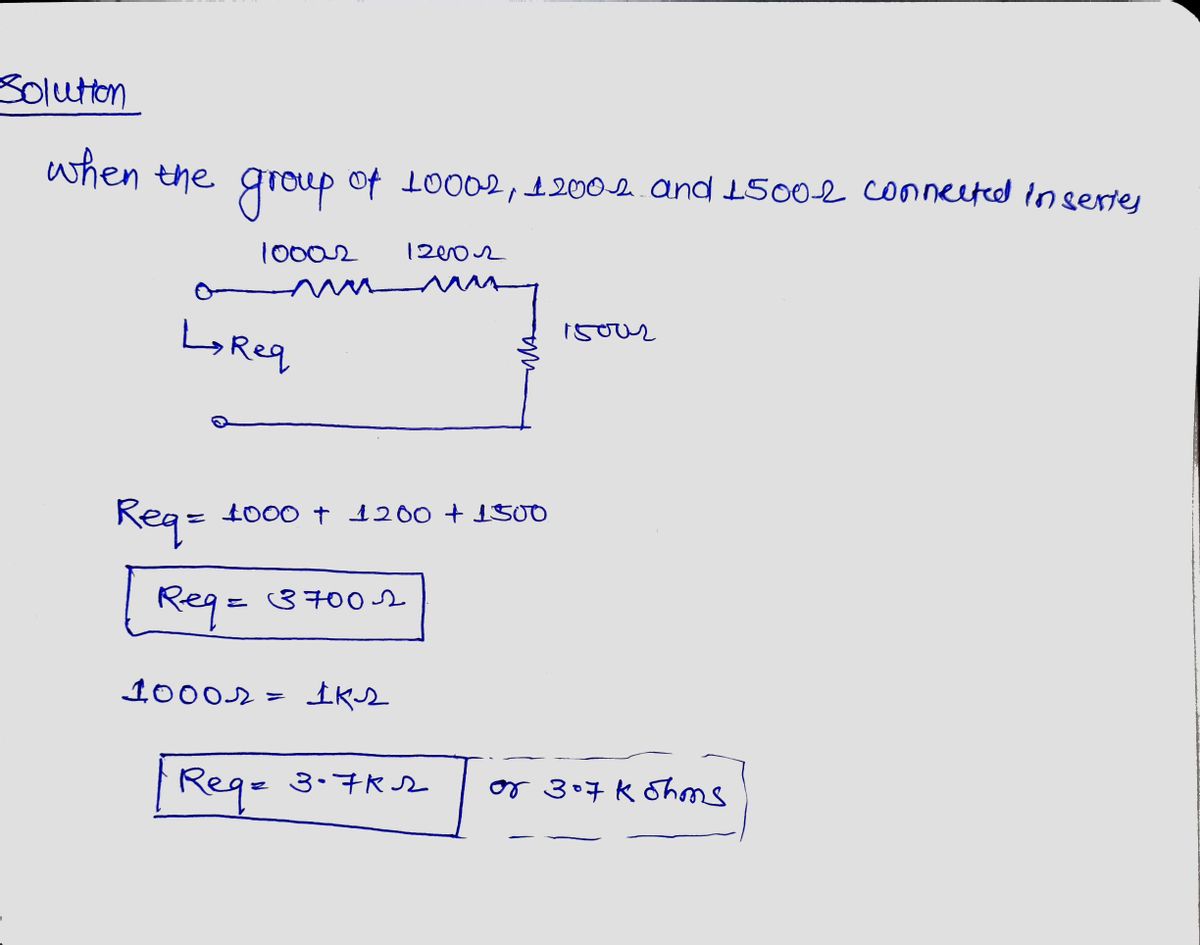 Solution
When the group of 1000Ω, 1200Ω and 1500Ω connected in series
1000Ω 1200Ω
1500Ω
↳Req
Req = 1000 + 1200 + 1500
Req = 3700Ω
1000Ω = 1KΩ
Req = 3.7KΩ or 3.7 K ohms